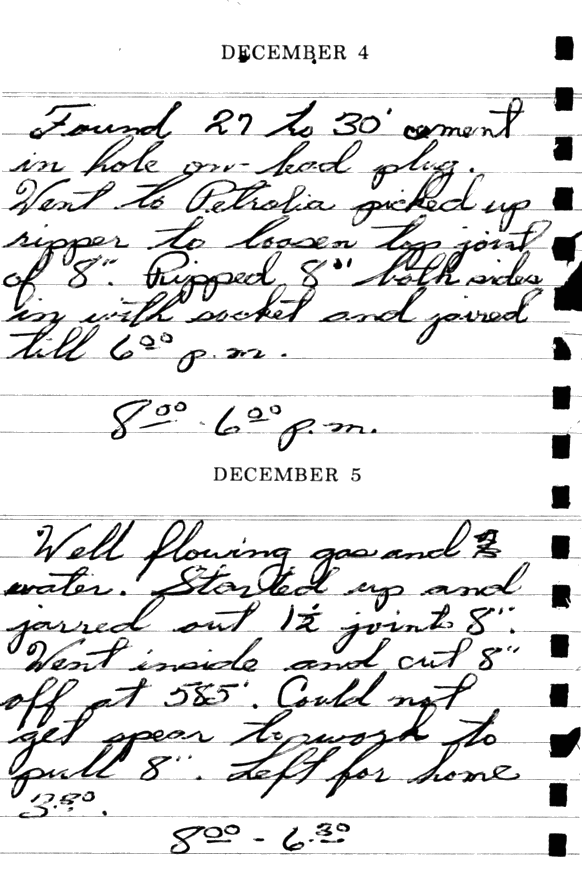 DECEMBER 4
Found 27 to 30' cement
in hole on lead plug.
Went to Petrolia picked up
ripper to loosen top joint
of 8". Ripped 8" both sides
in with socket and jarred
till 6⁰⁰ p.m.
8⁰⁰ - 6⁰⁰ p.m.
DECEMBER 5
Well flowing gas and
water. Started up and
jarred out 1½ joints 8".
Went inside and cut 8"
off at 585'. Could not
get spear to work to
pull 8". Left for home
3:30.
8⁰⁰ - 6:³⁰